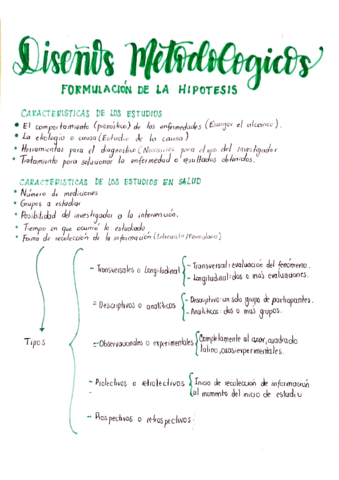 Diseños Metodologicos
FORMULACIÓN DE LA HIPOTESIS
CARACTERISTICAS DE LOS ESTUDIOS
• El comportamiento (pronóstico) de las enfermedades (Escoger el alcance).
• La etiología o causa (Estudio de la causa)
• Herramientas para el diagnostico (Necesarios para el uso del investigador
• Tratamiento para solucionar la enfermedad o resultados obtenidos.
CARACTERISTICAS DE LOS ESTUDIOS EN SALUD
• Número de mediciones
• Grupos a estudiar
• Posibilidad del investigador a la intervención.
• Tiempo en que ocurrió lo estudiado
• Forma de recolección de la información
Tipos
- Transversales o longitudinal
- Transversal: evaluación del fenómeno.
- Longitudinal: dos o más evaluaciones.
- Descriptivos o analíticos
- Descriptivo: un solo grupo de participantes.
- Analíticos: dos o mas grupos.
- Observacionales o experimentales
Completamente al azar, cuadrado
latino, cuasiexperimentales.
- Prolectivos o retrolectivos
Inicio de recolección de información
al momento del inicio de estudio
- Prospectivos o retrospectivos